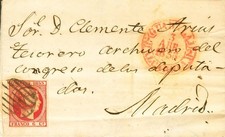 Sor. D. Clemente Arias
tesorero archivero del
Congreso de los diputa-
dos.
Madrid.
FRANCO 6 Cs